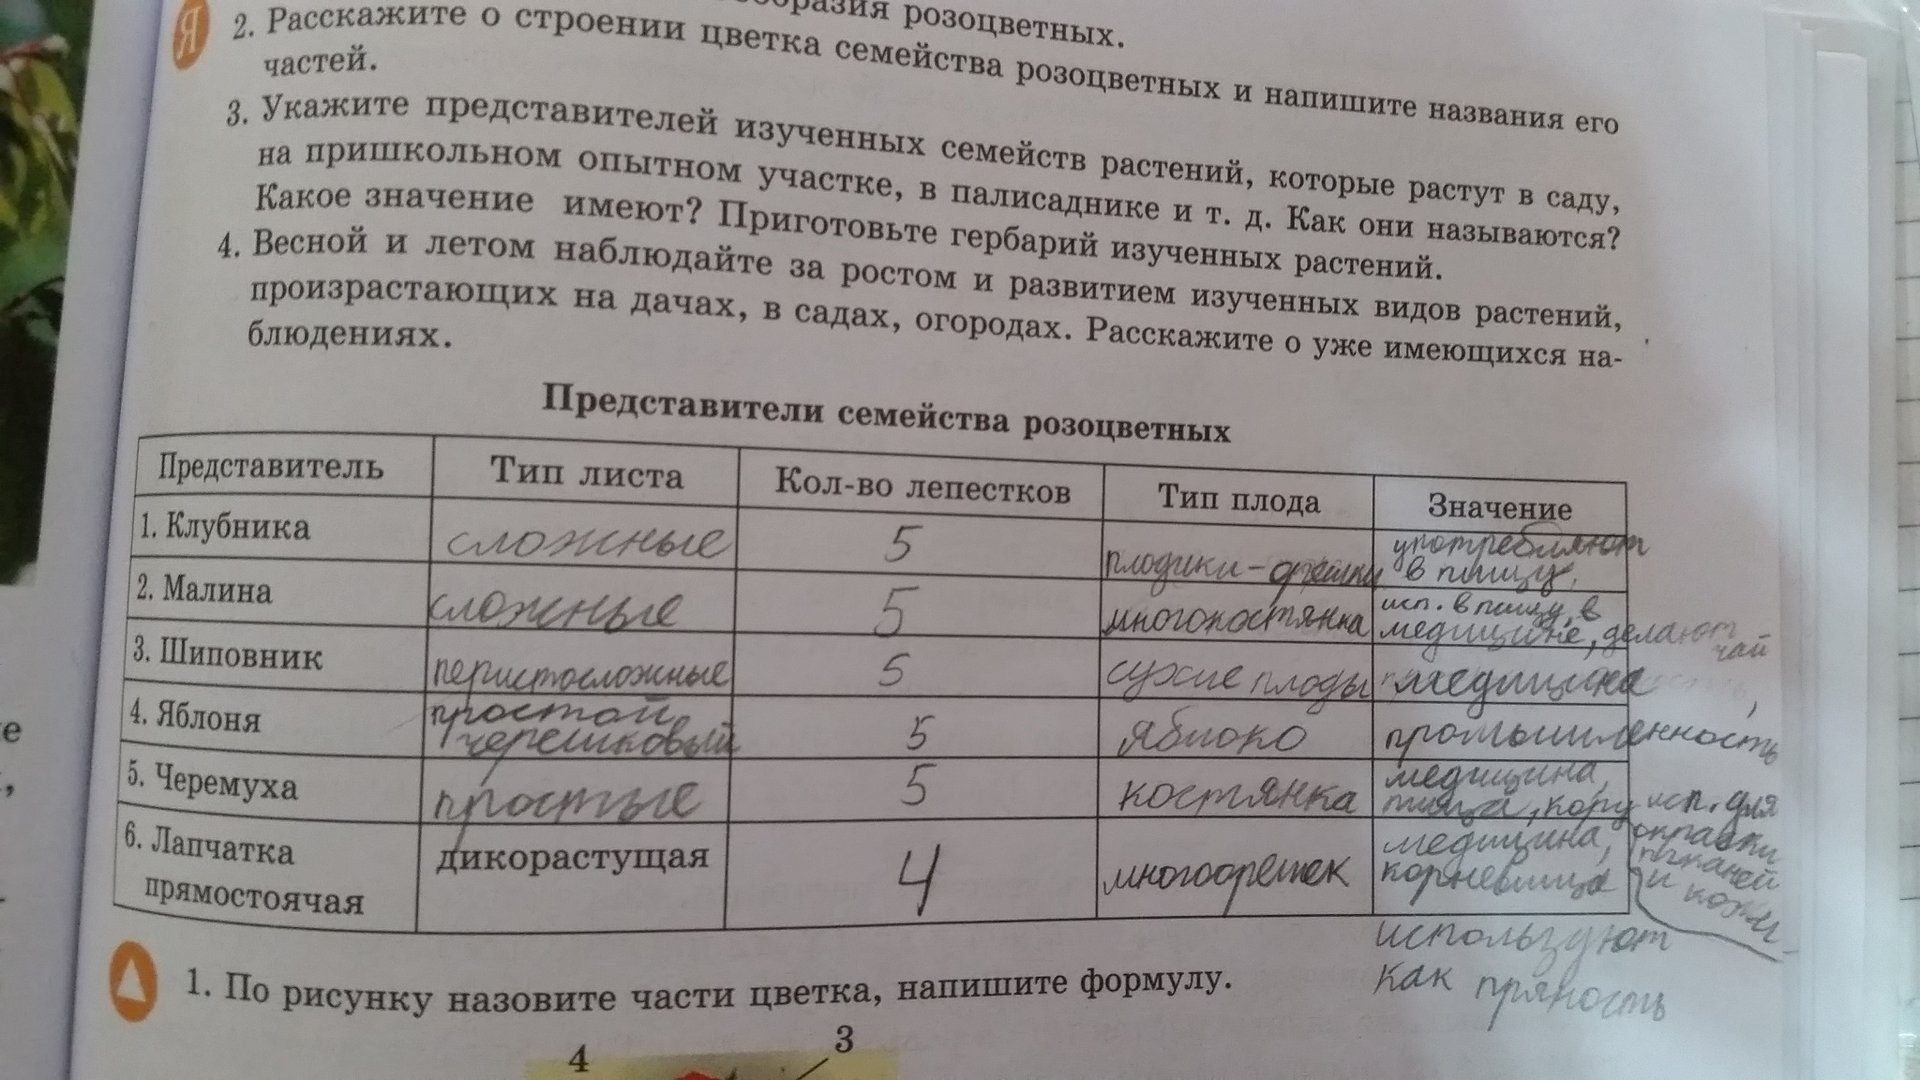 розоцветных.
Я
2. Расскажите о строении цветка семейства розоцветных и напишите названия его
частей.
3. Укажите представителей изученных семейств растений, которые растут в саду,
на пришкольном опытном участке, в палисаднике и т. д. Как они называются?
Какое значение имеют? Приготовьте гербарий изученных растений.
4. Весной и летом наблюдайте за ростом и развитием изученных видов растений,
произрастающих на дачах, в садах, огородах. Расскажите о уже имеющихся на-
блюдениях.
Представители семейства розоцветных
Представитель Тип листа Кол-во лепестков Тип плода Значение
1. Клубника сложные 5 плодики-орешки употребляют
в пищу,
2. Малина сложные 5 многокостянка исп. в пищу, в
медицине, делают
чай
3. Шиповник перистосложные 5 сухие плоды медицина
4. Яблоня простой черешковый 5 яблоко промышленность
5. Черемуха простые 5 костянка медицина,
пища, кору исп. для
окраски
тканей
и кожи
6. Лапчатка
прямостоячая дикорастущая 4 многоорешек медицина,
корневища
используют
как пряность
1. По рисунку назовите части цветка, напишите формулу.
4 3